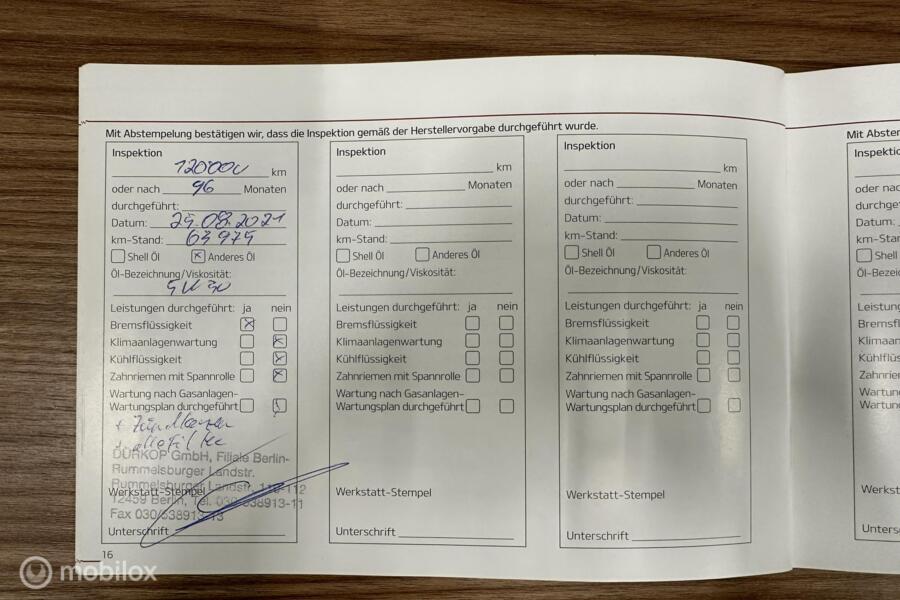 Mit Abstempelung bestätigen wir, dass die Inspektion gemäß der Herstellervorgabe durchgeführt wurde.
Inspektion
120000 km
oder nach 96 Monaten
durchgeführt:
Datum: 25.08.2021
km-Stand: 63975
Shell Öl Anderes Öl
Öl-Bezeichnung/Viskosität:
5W30
Leistungen durchgeführt: ja nein
Bremsflüssigkeit
Klimaanlagenwartung
Kühlflüssigkeit
Zahnriemen mit Spannrolle
Wartung nach Gasanlagen-
Wartungsplan durchgeführt
+ Zündkerzen
+ alle Filter
DÜRKOP GmbH, Filiale Berlin-
Rummelsburger Landstr.
Rummelsburger Landstr. 110-112
Werkstatt-Stempel
12459 Berlin, Tel. 030/638913-11
Fax 030/638913-13
Unterschrift
16
Inspektion
km
oder nach Monaten
durchgeführt:
Datum:
km-Stand:
Shell Öl Anderes Öl
Öl-Bezeichnung/Viskosität:
Leistungen durchgeführt: ja nein
Bremsflüssigkeit
Klimaanlagenwartung
Kühlflüssigkeit
Zahnriemen mit Spannrolle
Wartung nach Gasanlagen-
Wartungsplan durchgeführt
Werkstatt-Stempel
Unterschrift
Inspektion
km
oder nach Monaten
durchgeführt:
Datum:
km-Stand:
Shell Öl Anderes Öl
Öl-Bezeichnung/Viskosität:
Leistungen durchgeführt: ja nein
Bremsflüssigkeit
Klimaanlagenwartung
Kühlflüssigkeit
Zahnriemen mit Spannrolle
Wartung nach Gasanlagen-
Wartungsplan durchgeführt
Werkstatt-Stempel
Unterschrift
Mit Abster
Inspektio
oder nac
durchge
Datum:
km-Star
Shell
Öl-Beze
Leistung
Bremsfl
Klimaan
Kühlflüs
Zahnrie
Wartung
Wartun
Werkst
Unters
mobilox